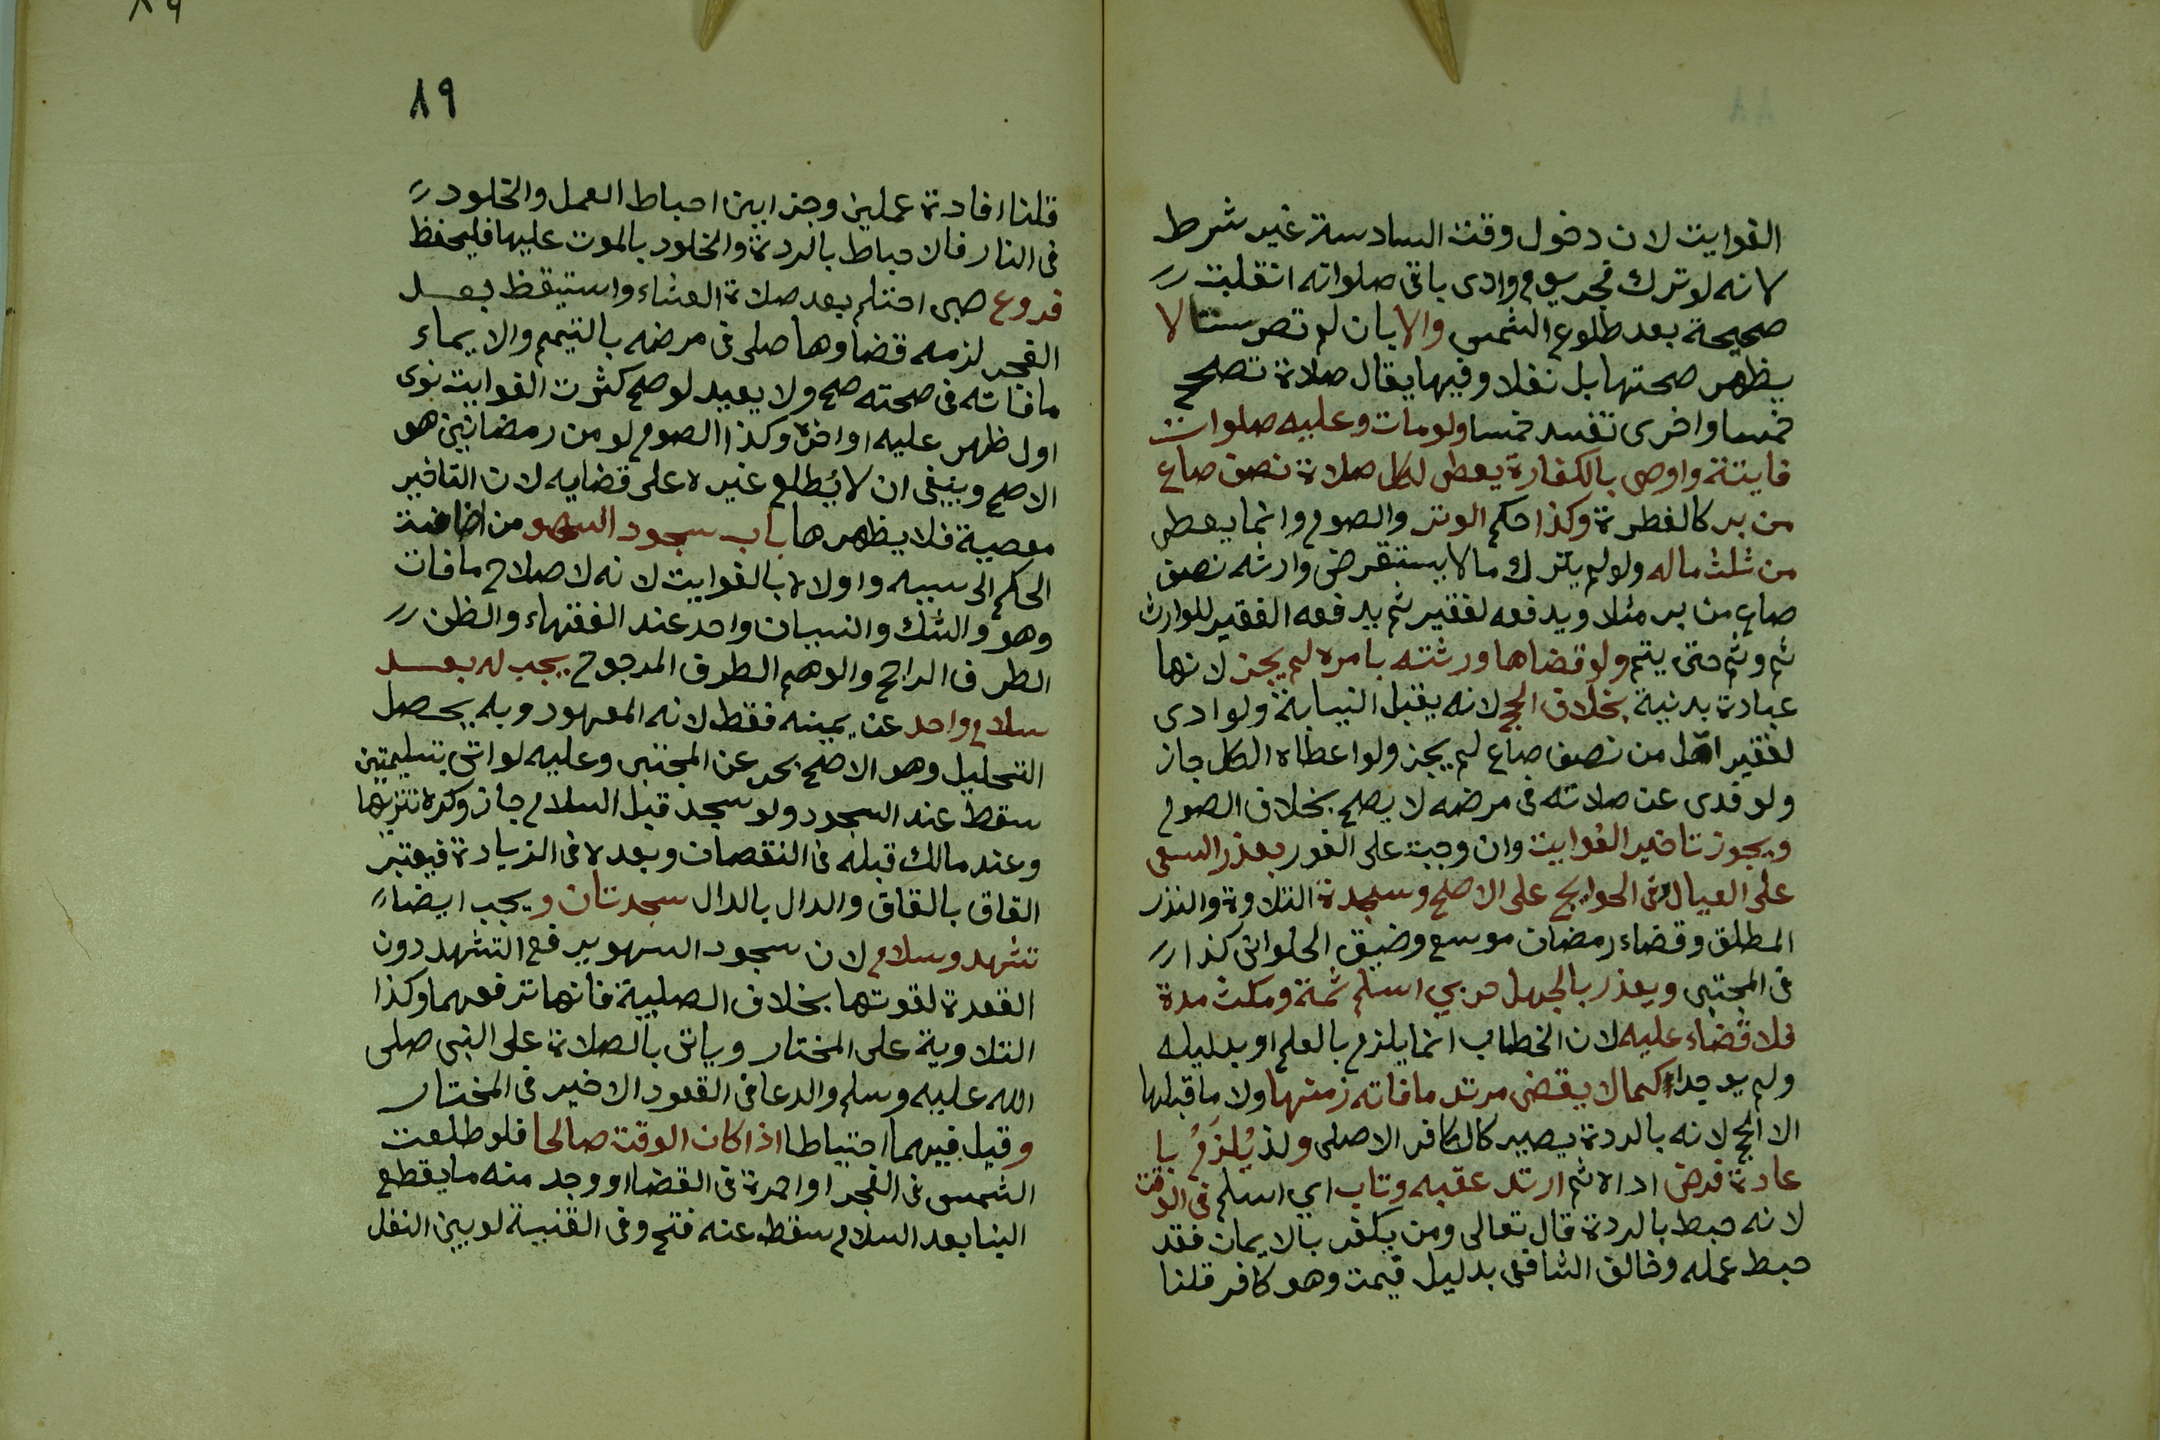 الفوايت لان دخول وقت السادسة غير شرط
لانه لو ترك فجر يوم وادى باقى صلواته انقلبت
صحيحة بعد طلوع الشمس والا بان لم تصر ستا لا
يظهر صحتها بل نفلا وفيها يقال صلاة تصحح
خمسا واخرى تفسد خمسا ولو مات وعليه صلوات
فايتة واوصى بالكفارة يعطى لكل صلاة نصف صاع
من بر كالفطرة وكذا حكم الوتر والصوم وانما يعطى
من ثلث ماله ولو لم يترك مالا يستقرض وارثه نصف
صاع من بر مثلا ويدفعه لفقير ثم يدفعه الفقير للوارث
ثم وثم حتى يتم ولو قضاها ورثته بامره لم يجز لانها
عبادة بدنية بخلاف الحج لانه يقبل النيابة ولو ادى
لفقير اقل من نصف صاع لم يجز ولو اعطاه الكل جاز
ولو فدى عن صلاته فى مرضه لا يصح بخلاف الصوم
ويجوز تاخير الفوايت وان وجبت على الفور بعذر السعى
على العيال وفى الحوايج على الاصح وسجدة التلاوة والنذر
المطلق وقضاء رمضان موسع وضيق الحلوانى كذا
فى المجتبى ويعذر بالجهل حربي اسلم ثمة ومكث مدة
فلا قضاء عليه لان الخطاب انما يلزم بالعلم او بدليله
ولم يوجدا كما لا يقضى مرتد ما فاته زمنها ولا ما قبلها
الا الحج لانه بالردة يصير كالكافر الاصلى ولذ يُلزَمُ با
عادة فرض اداه ثم ارتد عقبه وتاب اي اسلم فى الوقت
لانه حبط بالردة قال تعالى ومن يكفر بالايمان فقد
حبط عمله وخالف الشافعى بدليل فيمت وهو كافر قلنا
٨٩
قلنا افادة عملين وجزايين احباط العمل والخلود
فى النار فالاحباط بالردة والخلود بالموت عليها فليحفظ
فروع صبى احتلم بعد صلاة العشاء واستيقظ بعد
الفجر لزمه قضاوها صلى فى مرضه بالتيمم والايماء
ما فاته فى صحته صح ولا يعيد لو صح كثرت الفوايت نوى
اول ظهر عليه او اخره وكذا الصوم لو من رمضانين هو
الاصح وينبغى ان لا يُطلع غيره على قضايه لان التاخير
معصية فلا يظهرها باب سجود السهو من اضافة
الحكم الى سببه واولاه بالفوايت لانه لاصلاح ما فات
وهو والشك والنسيان واحد عند الفقهاء والظن
الطرف الراجح والوهم الطرف المرجوح يجب له بعد
سلام واحد عن يمينه فقط لانه المعهود وبه يحصل
التحليل وهو الاصح بحر عن المجتبى وعليه لو اتى بتسليمتين
سقط عند السجود ولو سجد قبل السلام جاز وكره تنزيها
وعند مالك قبله فى النقصان وبعده فى الزيادة فيعتبر
القاف بالقاف والدال بالدال سجدتان ويجب ايضا
تشهد وسلام لان سجود السهو يرفع التشهد دون
القعدة لقوتها بخلاف الصلبية فانها ترفعهما وكذا
التلاوية على المختار وياتى بالصلاة على النبى صلى
الله عليه وسلم والدعا فى القعود الاخير فى المختار
وقيل فيهما احتياطا اذا كان الوقت صالحا فلو طلعت
الشمس فى الفجر او احمرت فى القضا او وجد منه ما يقطع
البنا بعد السلام سقط عنه فتح وفى القنية لو بين النفل